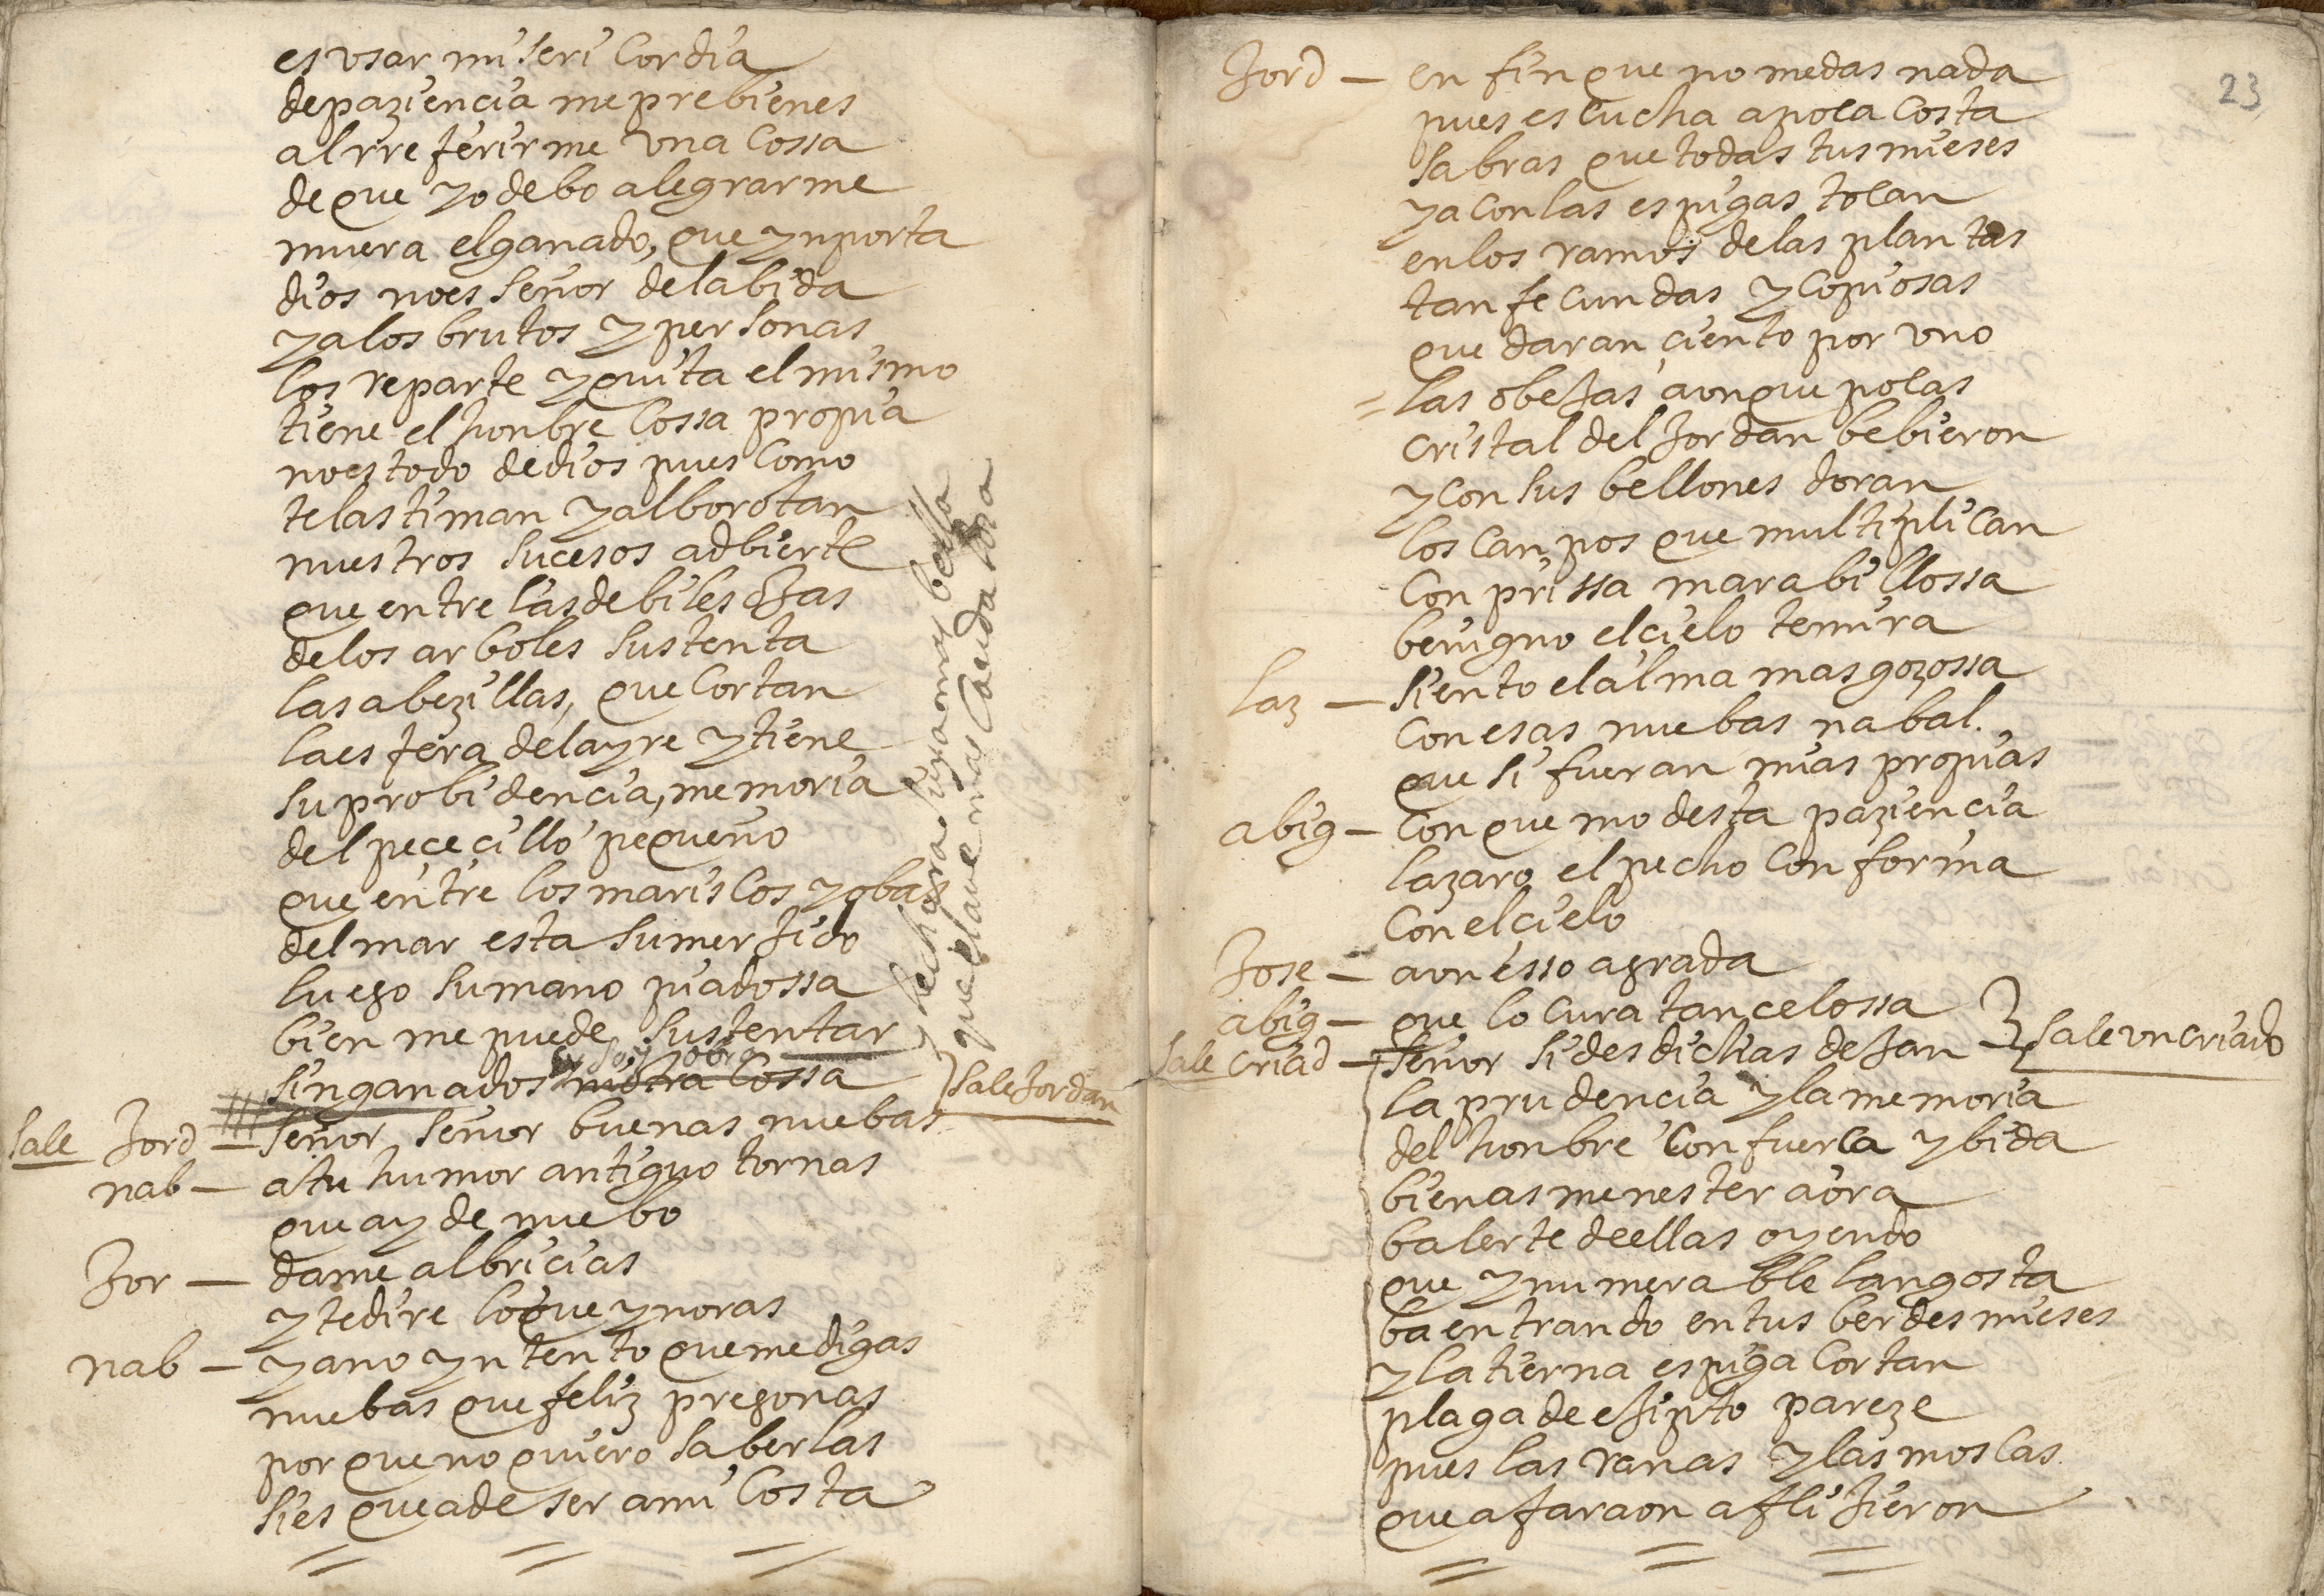 es usar miseri cordia
de paziencia me prebienes
al rreferirme una cossa
de que yo debo alegrarme
muera el ganado, que ynporta
dios no es señor de la bida
y a los brutos y personas
los reparte y quita el mismo
tiene el honbre cossa propia
no es todo de dios pues como
te lastiman y alborotan
nuestros sucesos adbierte
que entre las debiles ojas
de los arboles sustenta
las abezillas, que cortan
la esfera del ayre y tiene
su probidencia, memoria
del pececillo pequeño
que entre los mariscos y obas
del mar esta sumerjido
luego su mano piadossa
bien me puede sustentar
sin ganados soy obra
cossa
y hechura suya mas bella
que el ave mas caudalosa
} sale Jordan
sale Jord — señor, señor buenas nuebas
nab — a tu humor antiguo tornas
que ay de nuebo
Jor — dame albricias
y te dire lo que ynoras
nab — ya no yntento que me digas
nuebas que feliz pregonas
porque no quiero saberlas
si es que a de ser a mi costa
23
Jord — en fin que no me das nada
pues escucha a poca costa
sabras que todas tus mieses
ya con las espigas tocan
en los ramos de las plantas
tan fecundas y copiosas
que daran ciento por uno
= las obejas aunque pocas
cristal del Jordan bebieron
y con sus bellones doran
los canpos que multiplican
con prissa marabillossa
benigno el cielo temira
Laz — siento el alma mas gozossa
con esas nuebas nabal.
que si fueran mias propias
abig — con que modesta paziencia
lazaro el pecho conforma
con el cielo
Jose — aun esso agrada
abig — que locura tan celossa
} sale un criado
sale criad — señor si desdichas dejan
la prudencia y la memoria
del honbre con fuerca y bida
bien as menester aora
balerte de ellas oyendo
que ynumerable langosta
ba entrando en tus berdes mieses
y la tierna espiga cortan
plaga de ejipto pareze
pues las ranas y las moscas
que a faraon aflijieron